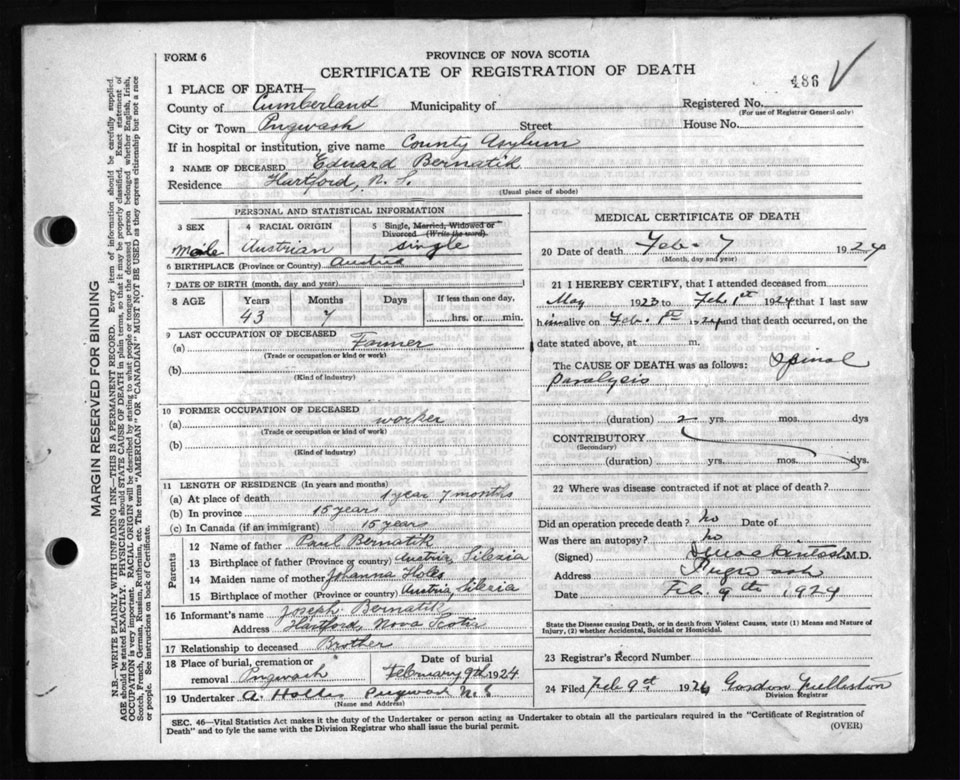 FORM 6
PROVINCE OF NOVA SCOTIA
CERTIFICATE OF REGISTRATION OF DEATH
486 V
1 PLACE OF DEATH—
County of Cumberland Municipality of Registered No.
(For use of Registrar General only)
City or Town Pugwash Street House No.
If in hospital or institution, give name County Asylum
2 NAME OF DECEASED Eduard Bernatik
Residence Hartford, N. S.
(Usual place of abode)
PERSONAL AND STATISTICAL INFORMATION
3 SEX 4 RACIAL ORIGIN 5 Single, Married, Widowed or Divorced (Write the word)
Male Austrian Single
6 BIRTHPLACE (Province or Country) Austria
7 DATE OF BIRTH (month, day and year)
8 AGE Years Months Days If less than one day,
43 7 hrs. or min.
9 LAST OCCUPATION OF DECEASED
(a) Farmer
(Trade or occupation or kind or work)
(b)
(Kind of industry)
10 FORMER OCCUPATION OF DECEASED
(a) worker
(Trade or occupation or kind of work)
(b)
(Kind of industry)
11 LENGTH OF RESIDENCE (In years and months)
(a) At place of death 1 year 7 months
(b) In province 15 years
(c) In Canada (if an immigrant) 15 years
Parents
12 Name of father Paul Bernatik
13 Birthplace of father (Province or country) Austria, Silezia
14 Maiden name of mother Johanna
15 Birthplace of mother (Province or country) Austria, Silezia
16 Informant's name Joseph Bernatik
Address Hartford, Nova Scotia
17 Relationship to deceased Brother
18 Place of burial, cremation or removal Pugwash
Date of burial February 9th 1924
19 Undertaker A. Hollis Pugwash N.S
(Name and Address)
MEDICAL CERTIFICATE OF DEATH
20 Date of death Feb- 7 1924
(Month, day and year)
21 I HEREBY CERTIFY, that I attended deceased from
May 1923 to Feb 1st 1924 that I last saw
him alive on Feb. 1st 1924 and that death occurred, on
date stated above, at m.
The CAUSE OF DEATH was as follows: Spinal
Paralysis
(duration) 2 yrs. mos. dys
CONTRIBUTORY
(Secondary)
(duration) yrs. mos. dys.
22 Where was disease contracted if not at place of death?
Did an operation precede death? no Date of
Was there an autopsy? no
(Signed) Mackintosh M.D.
Address Pugwash
Date Feb. 9th 1924
State the Disease causing Death, or in death from Violent Causes, state (1) Means and Nature of Injury, (2) whether Accidental, Suicidal or Homicidal.
23 Registrar's Record Number
24 Filed Feb 9th 1924 Gordon
Division Registrar
SEC. 46—Vital Statistics Act makes it the duty of the Undertaker or person acting as Undertaker to obtain all the particulars required in the "Certificate of Registration of
Death" and to fyle the same with the Division Registrar who shall issue the burial permit.
(OVER)
MARGIN RESERVED FOR BINDING
N.B.—WRITE PLAINLY WITH UNFADING INK—THIS IS A PERMANENT RECORD. Every item of information should be carefully supplied.
AGE should be stated EXACTLY. PHYSICIANS should STATE CAUSE OF DEATH in plain terms, so that it may be properly classified. Exact statement of
OCCUPATION is very important. RACIAL ORIGIN will be described by stating to what people or tongue the deceased person belonged whether English, Irish,
Scotch, French, German, Russian, Ruthenian, etc. The terms "AMERICAN" OR "CANADIAN" MUST NOT BE USED as they express citizenship but not a race
or people. See instructions on back of Certificate.